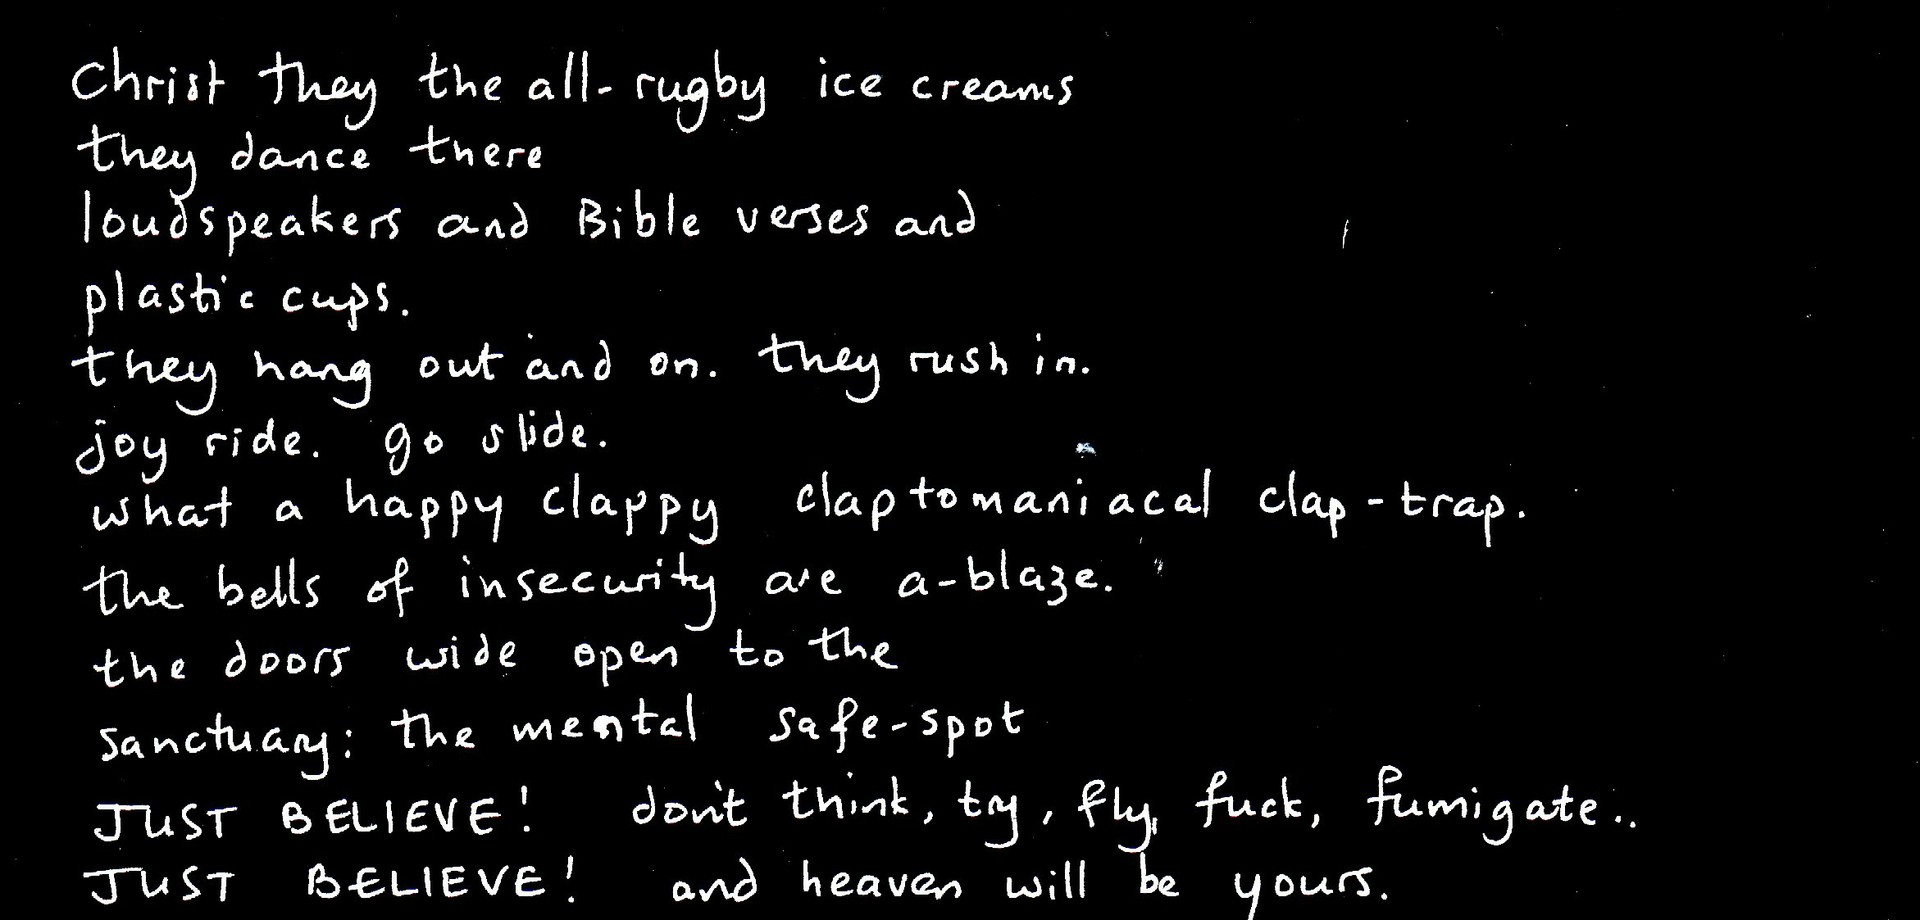 Christ they the all-rugby ice creams
they dance there
loudspeakers and Bible verses and
plastic cups.
they hang out and on. they rush in.
joy ride. go slide.
what a happy clappy claptomaniacal clap-trap.
the bells of insecurity are a-blaze.
the doors wide open to the
sanctuary: the mental safe-spot
JUST BELIEVE! don't think, try, fly, fuck, fumigate..
JUST BELIEVE! and heaven will be yours.